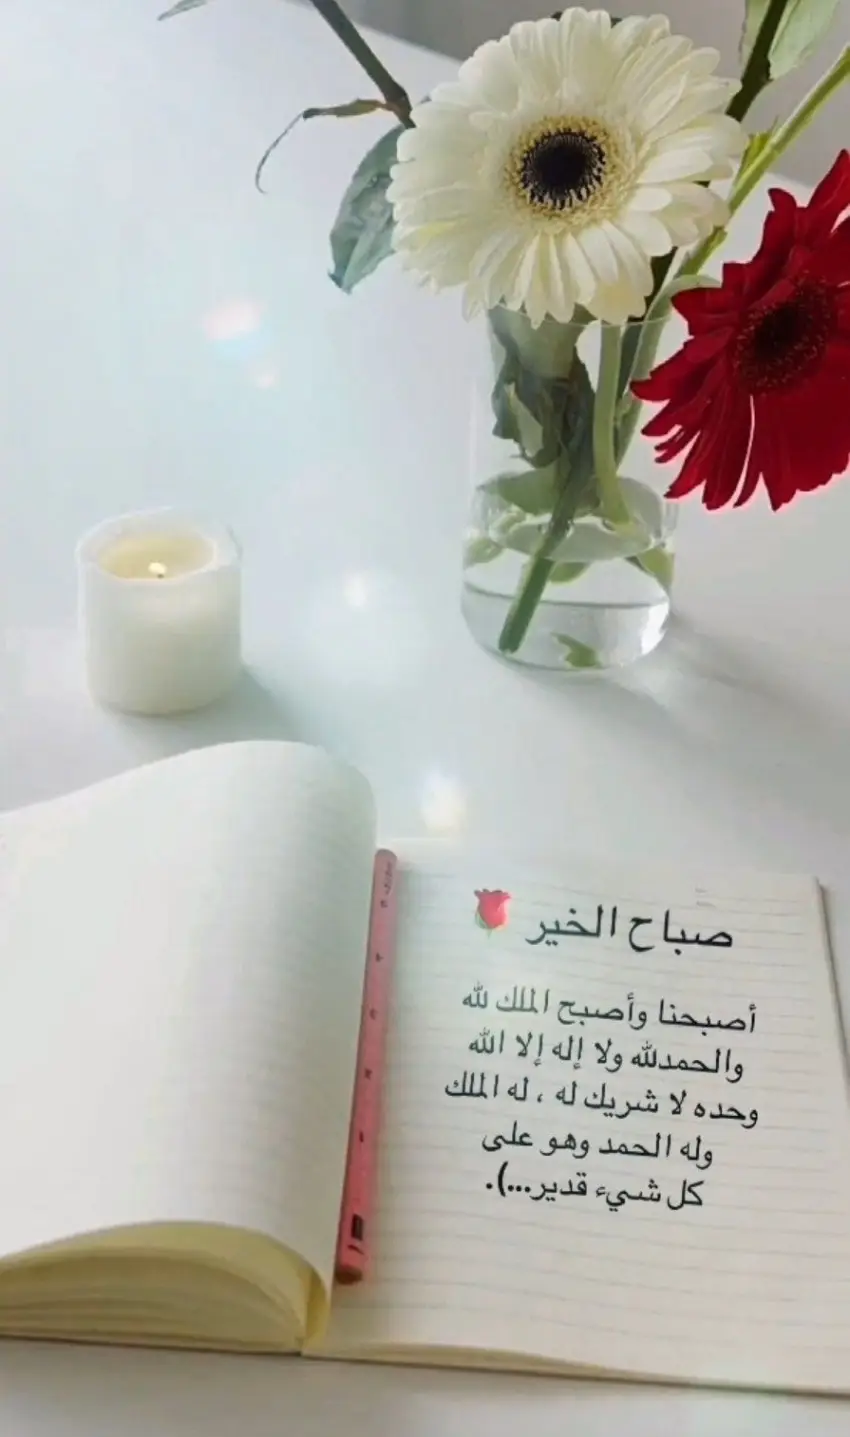 صباح الخير 🌹
أصبحنا وأصبح الملك لله
والحمدلله ولا إله إلا الله
وحده لا شريك له ، له الملك
وله الحمد وهو على
كل شيء قدير...).